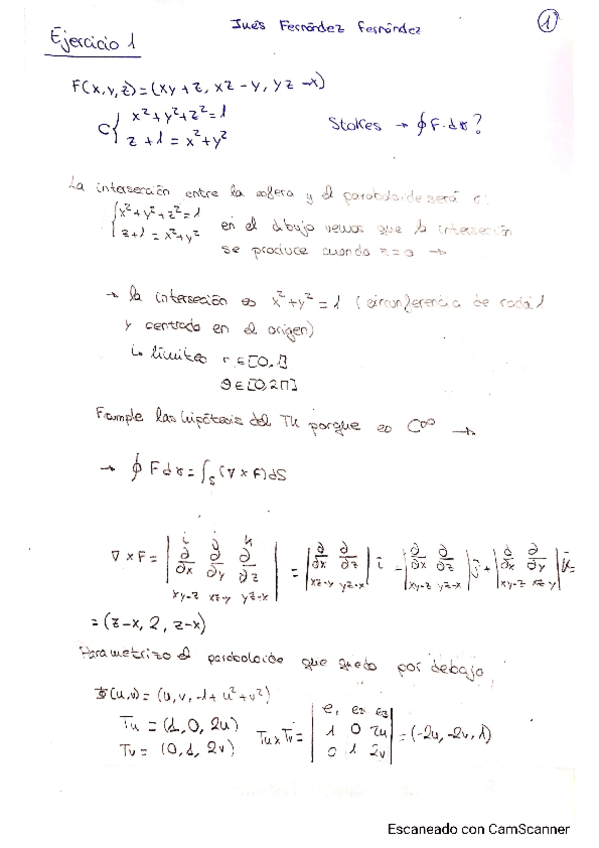 Inés Fernández Fernández
1
Ejercicio 1
F(x,y,z)=(xy+z, xz-y, yz-x)
C{ x²+y²+z²=1
z+1=x²+y²
Stokes → ∮F·dσ?
La interseración entre la esfera y el paraboloide será σ:
{x²+y²+z²=1
z+1=x²+y²
en el dibujo vemos que la intersección
se produce cuando z=0 →
→ la interseción es x²+y²=1 (circunferencia de radio 1
y centrado en el origen)
↳ límites r∈[0,1]
θ∈[0,2π]
F cumple las hipótesis del Th porque es C^∞ →
→ ∮ F dσ = ∫_S (∇×F)dS
∇×F = | i j k
∂/∂x ∂/∂y ∂/∂z
xy-z xz-y yz-x | = | ∂/∂x ∂/∂z
xz-y yz-x | i - | ∂/∂x ∂/∂z
xy-z yz-x | j + | ∂/∂x ∂/∂y
xy-z xz-y | k =
= (z-x, 2, z-x)
Parametrizo el paraboloide que quedo por debajo
Φ(u,v) = (u, v, -1+u²+v²)
Tu = (1, 0, 2u)
Tv = (0, 1, 2v)
Tu×Tv = | e₁ e₂ e₃
1 0 2u
0 1 2v | = (-2u, -2v, 1)
Escaneado con CamScanner